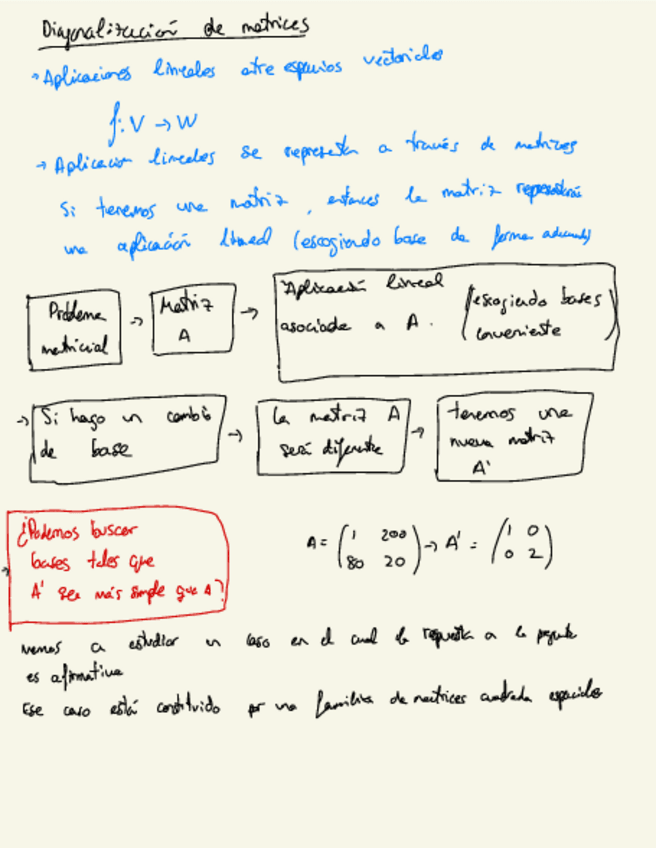 Diagonalización de matrices
→ Aplicaciones lineales entre espacios vectoriales
f: V → W
→ Aplicación lineales se representa a través de matrices
Si tenemos una matriz, entonces la matriz representará
una aplicación lineal (escogiendo base de forma adecuada)
Problema
matricial
→
Matriz
A
→
Aplicación lineal
asociada a A. (escogiendo bases
conveniente)
→ Si hago un cambio
de base
→
la matriz A
será diferente
→
tenemos una
nueva matriz
A'
→ ¿Podemos buscar
bases tales que
A' sea más simple que A?
A = (1 200
80 20) → A' = (1 0
0 2)
Vamos a estudiar un caso en el cual la respuesta a la pregunta
es afirmativa
Ese caso está constituido por una familia de matrices cuadrada especiales